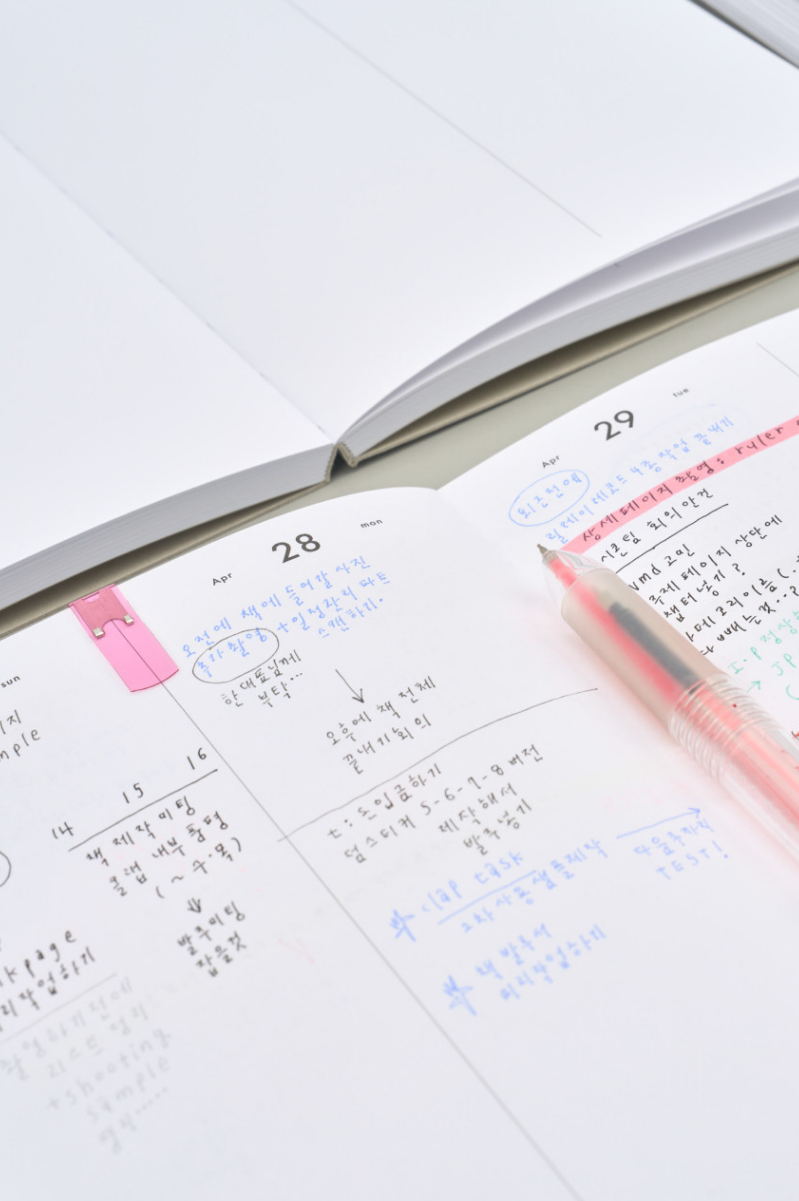 sun
이지
mple
14 15 16
책 제작 미팅
클랩 내부 품평
(~수·목)
발주미팅
잡을것
k page
미리작업하기
촬영하기전에
리스트 정리
+shooting
sample
Apr 28 mon
오전에 책에 들어갈 사진
추가 촬영 + 일정관리 파트
스캔하기.
한대표님께
부탁...
오후에 책 전체
끝내기 회의
t: 돈입금하기
덤스티커 5-6-7-8 버전
제작해서
발주넣기
clap task
2차 사용샘플제작
다음주까지
TEST!
책 발주서
미리작업하기
Apr 29 tue
퇴근전에
릴레이레코드 4종작업 끝내기
상세페이지촬영: ruler
시즌팀 회의안건
vmd 고민
주제 페이지 상단에
챕터넣기?
빼는것..?
I.P 정상
JP